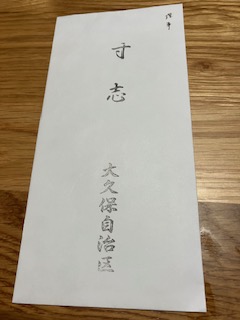 寸志
大久保自治区